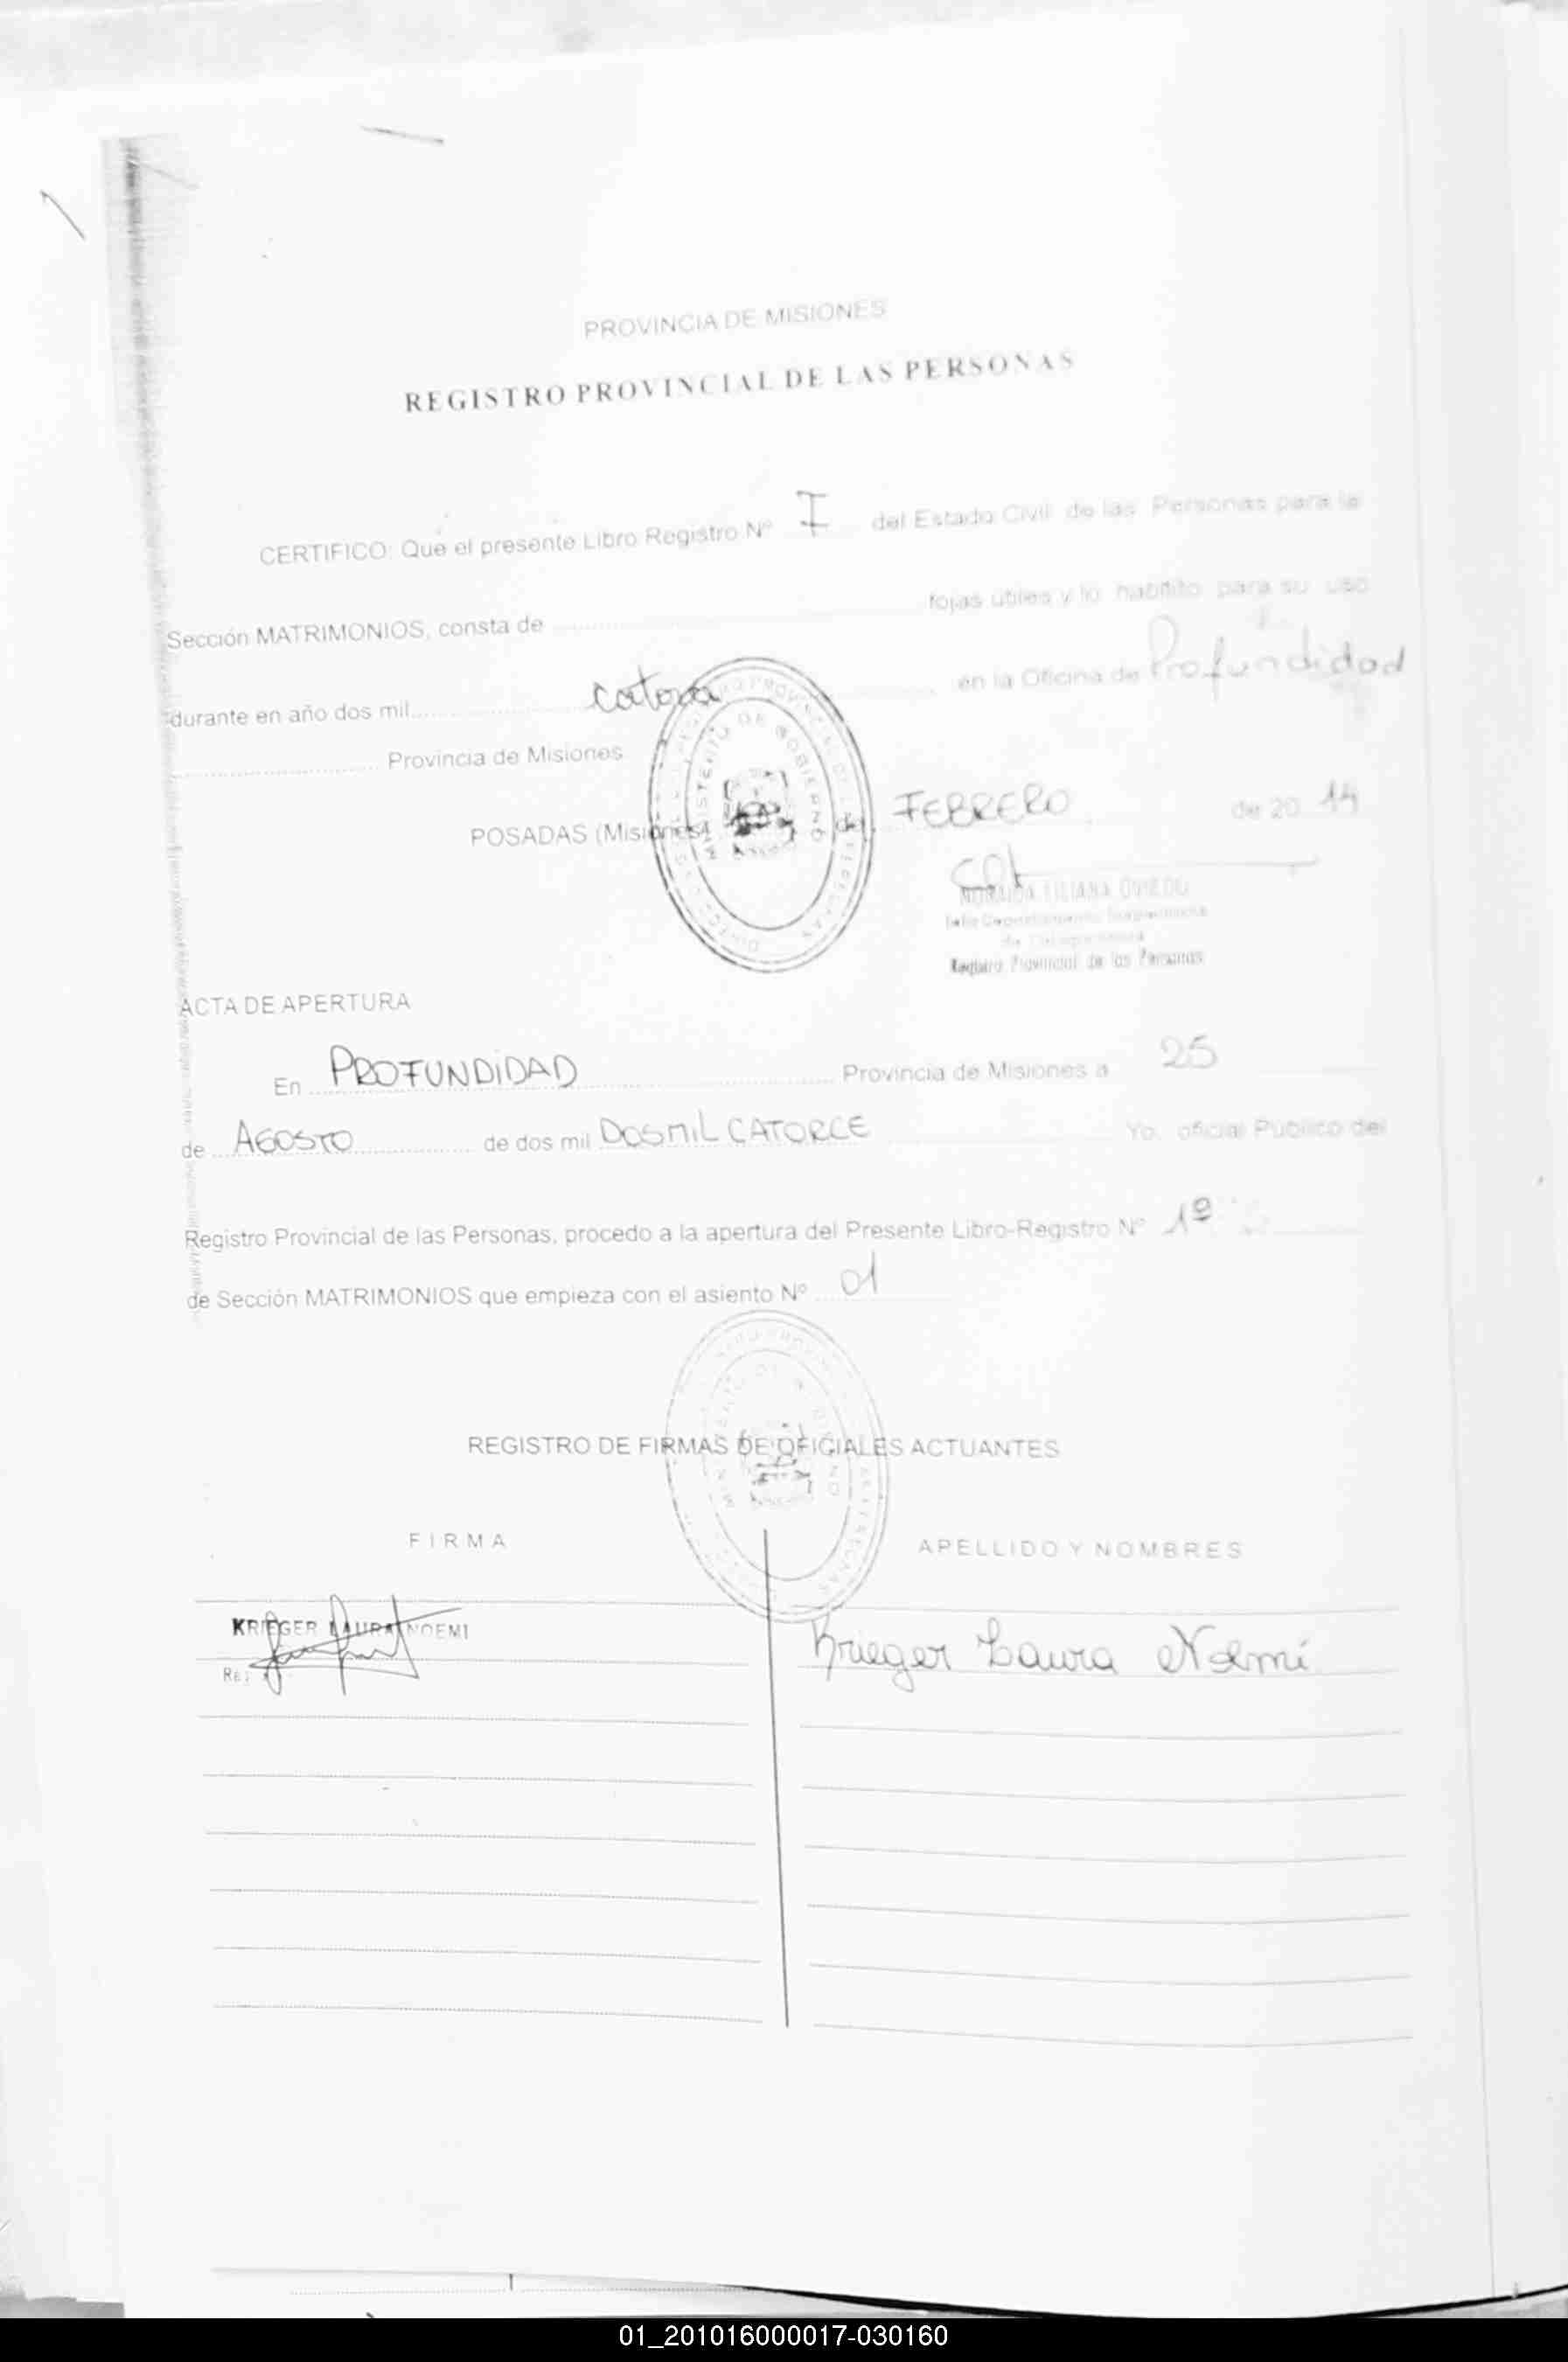 PROVINCIA DE MISIONES
REGISTRO PROVINCIAL DE LAS PERSONAS
CERTIFICO: Que el presente Libro Registro Nº I del Estado Civil de las Personas para la
Sección MATRIMONIOS, consta de fojas útiles y lo habilito para su uso
durante en año dos mil catorce en la Oficina de Profundidad
Provincia de Misiones
POSADAS (Misiones), de FEBRERO de 20 14
MINISTERIO DE GOBIERNO
LILIANA OVIEDO
Registro Provincial de las Personas
ACTA DE APERTURA
En PROFUNDIDAD Provincia de Misiones a 25
de AGOSTO de dos mil DOSMIL CATORCE Yo, oficial Público del
Registro Provincial de las Personas, procedo a la apertura del Presente Libro-Registro Nº 1º
de Sección MATRIMONIOS que empieza con el asiento Nº 01
REGISTRO DE FIRMAS DE OFICIALES ACTUANTES
FIRMA APELLIDO Y NOMBRES
KRIEGER LAURA NOEMI Krieger Laura Noemí
01_201016000017-030160